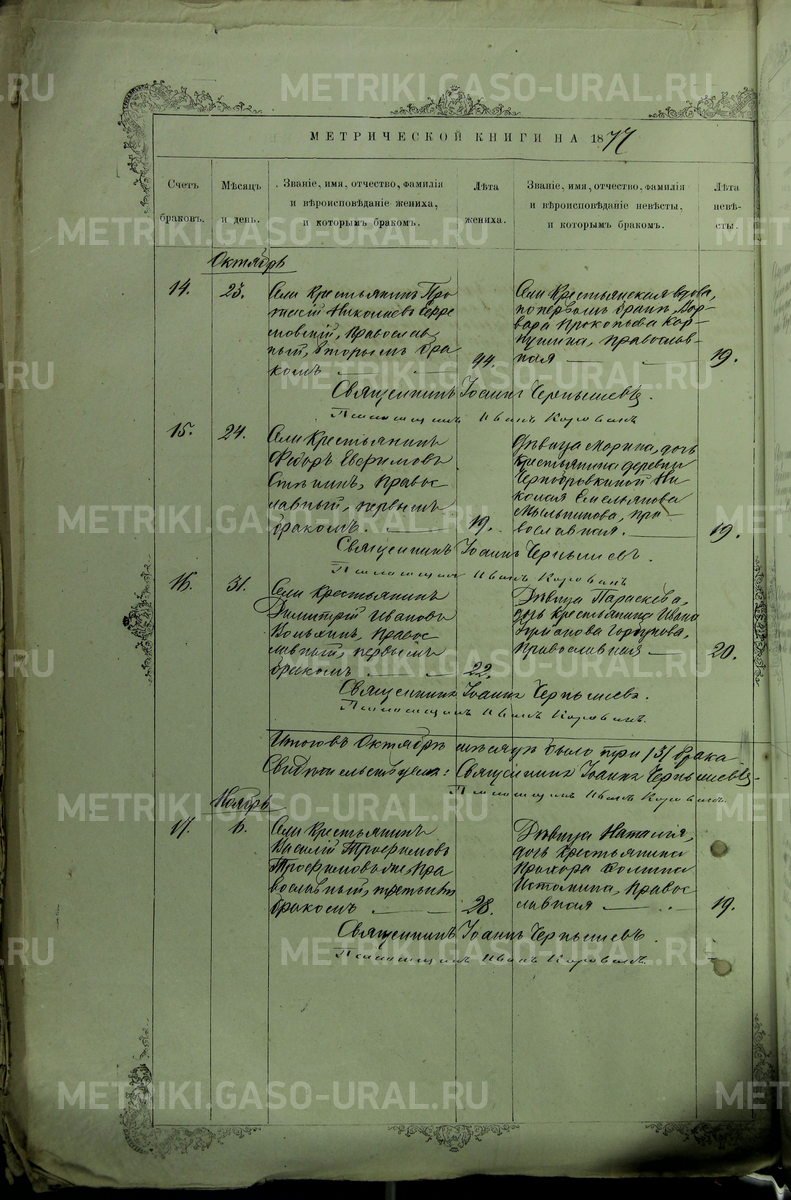 МЕТРИЧЕСКОЙ КНИГИ НА 1877
Счетъ
браковъ.
Мѣсяцъ
и день.
Званіе, имя, отчество, фамилія
и вѣроисповѣданіе жениха,
и которымъ бракомъ.
Лѣта
жениха.
Званіе, имя, отчество, фамилія
и вѣроисповѣданіе невѣсты,
и которымъ бракомъ.
Лѣта
невѣ-
сты.
Октябрь
14.
23.
Села Крестьянинъ
Николаевъ
Православ
ный, вторымъ бра
комъ
44.
Села Крестьянская вдова,
по первомъ бракѣ, Вар
вара Прокопьева
Православ
ная
19.
Священникъ Іоаннъ Чернышевъ.
Иванъ Коровинъ
15.
24.
Села Крестьянинъ
Федоръ Евфимовъ
Правос
лавный, первымъ
бракомъ.
19.
Дѣвица Марина, дочь
Крестьянина деревни
Ни
колая Емельянова
Мыльникова, пра
вославная.
19.
Священникъ Іоаннъ Чернышевъ.
Иванъ Коровинъ
16.
31.
Села Крестьянинъ
Димитрій Ивановъ
Правос
лавный, первымъ
бракомъ
22.
Дѣвица Параскева,
дочь Крестьянина Ивана
Горбунова,
Православная
20.
Священникъ Іоаннъ Чернышевъ.
Иванъ Коровинъ.
Итого въ Октябрѣ мѣсяцѣ было три /3/ брака
Священникъ Іоаннъ Чернышевъ
Иванъ Коровинъ.
Ноябрь
17.
6.
Села Крестьянинъ
Василій Трофимовъ
Пра
вославный, третьимъ
бракомъ
28.
Дѣвица Наталія,
дочь Крестьянина
Прохора
Правос
лавная
19.
Священникъ Іоаннъ Чернышевъ.
Иванъ Коровинъ.
METRIKI.GASO-URAL.RU